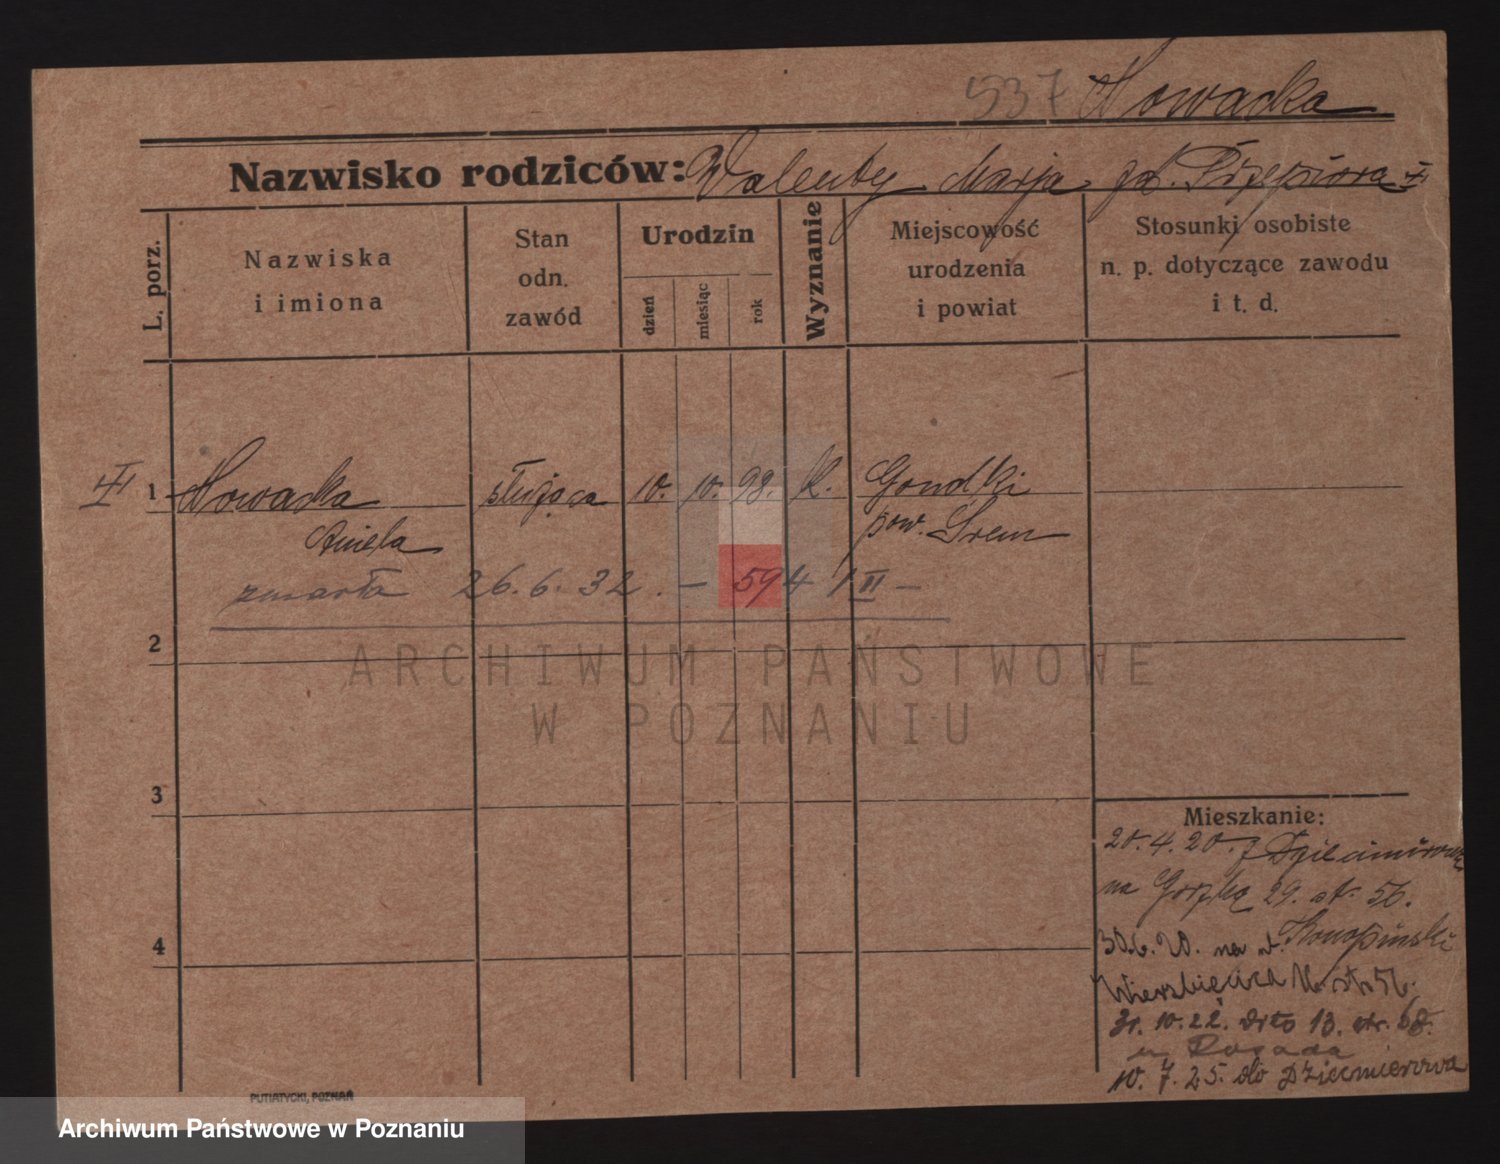 537 Nowacka
Nazwisko rodziców: Walenty Marja zd. Przepióra
L. porz.
Nazwiska
i imiona
Stan
odn.
zawód
Urodzin
dzień
miesiąc
rok
Wyznanie
Miejscowość
urodzenia
i powiat
Stosunki osobiste
n. p. dotyczące zawodu
i t. d.
1 Nowacka służąca 10. 10. 98. k. Gondki
Aniela pow. Śrem
zmarła 26.6.32. – 594 / III –
2
3
4
ARCHIWUM PAŃSTWOWE
W POZNANIU
Mieszkanie:
20.4.20. z Dziećmirowa
na Górzką 29. st. 56.
30.6.20. na st. Konopiński
Wierzbięcice 16. st. 56.
31.10.22. dito 13. str. 68.
u Rogada
10.7.25. do Dziećmierowa
PUTIATYCKI, POZNAŃ
Archiwum Państwowe w Poznaniu